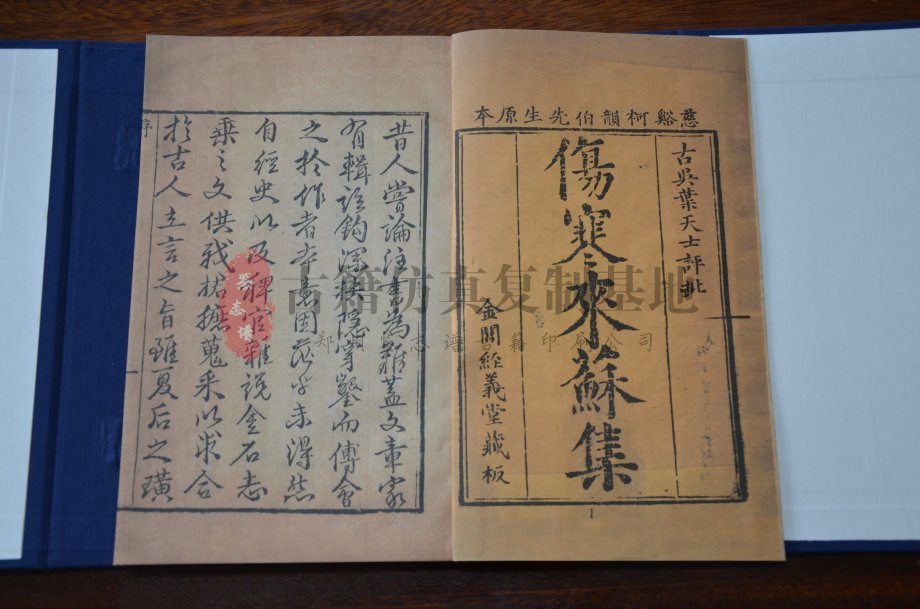 慈谿柯韻伯先生原本
古吳葉天士評批
傷寒來蘇集
金閶經義堂藏板
1
昔人嘗論注書為難蓋文章家
有輯詮鉤深抉隱穿鑿而傅會
之於作者本意固茫乎未得然
自經史以及稗官雜說金石志
乘之文供我捃摭蒐采以求合
於古人立言之旨雖夏后之璜
序
古籍仿真复制基地